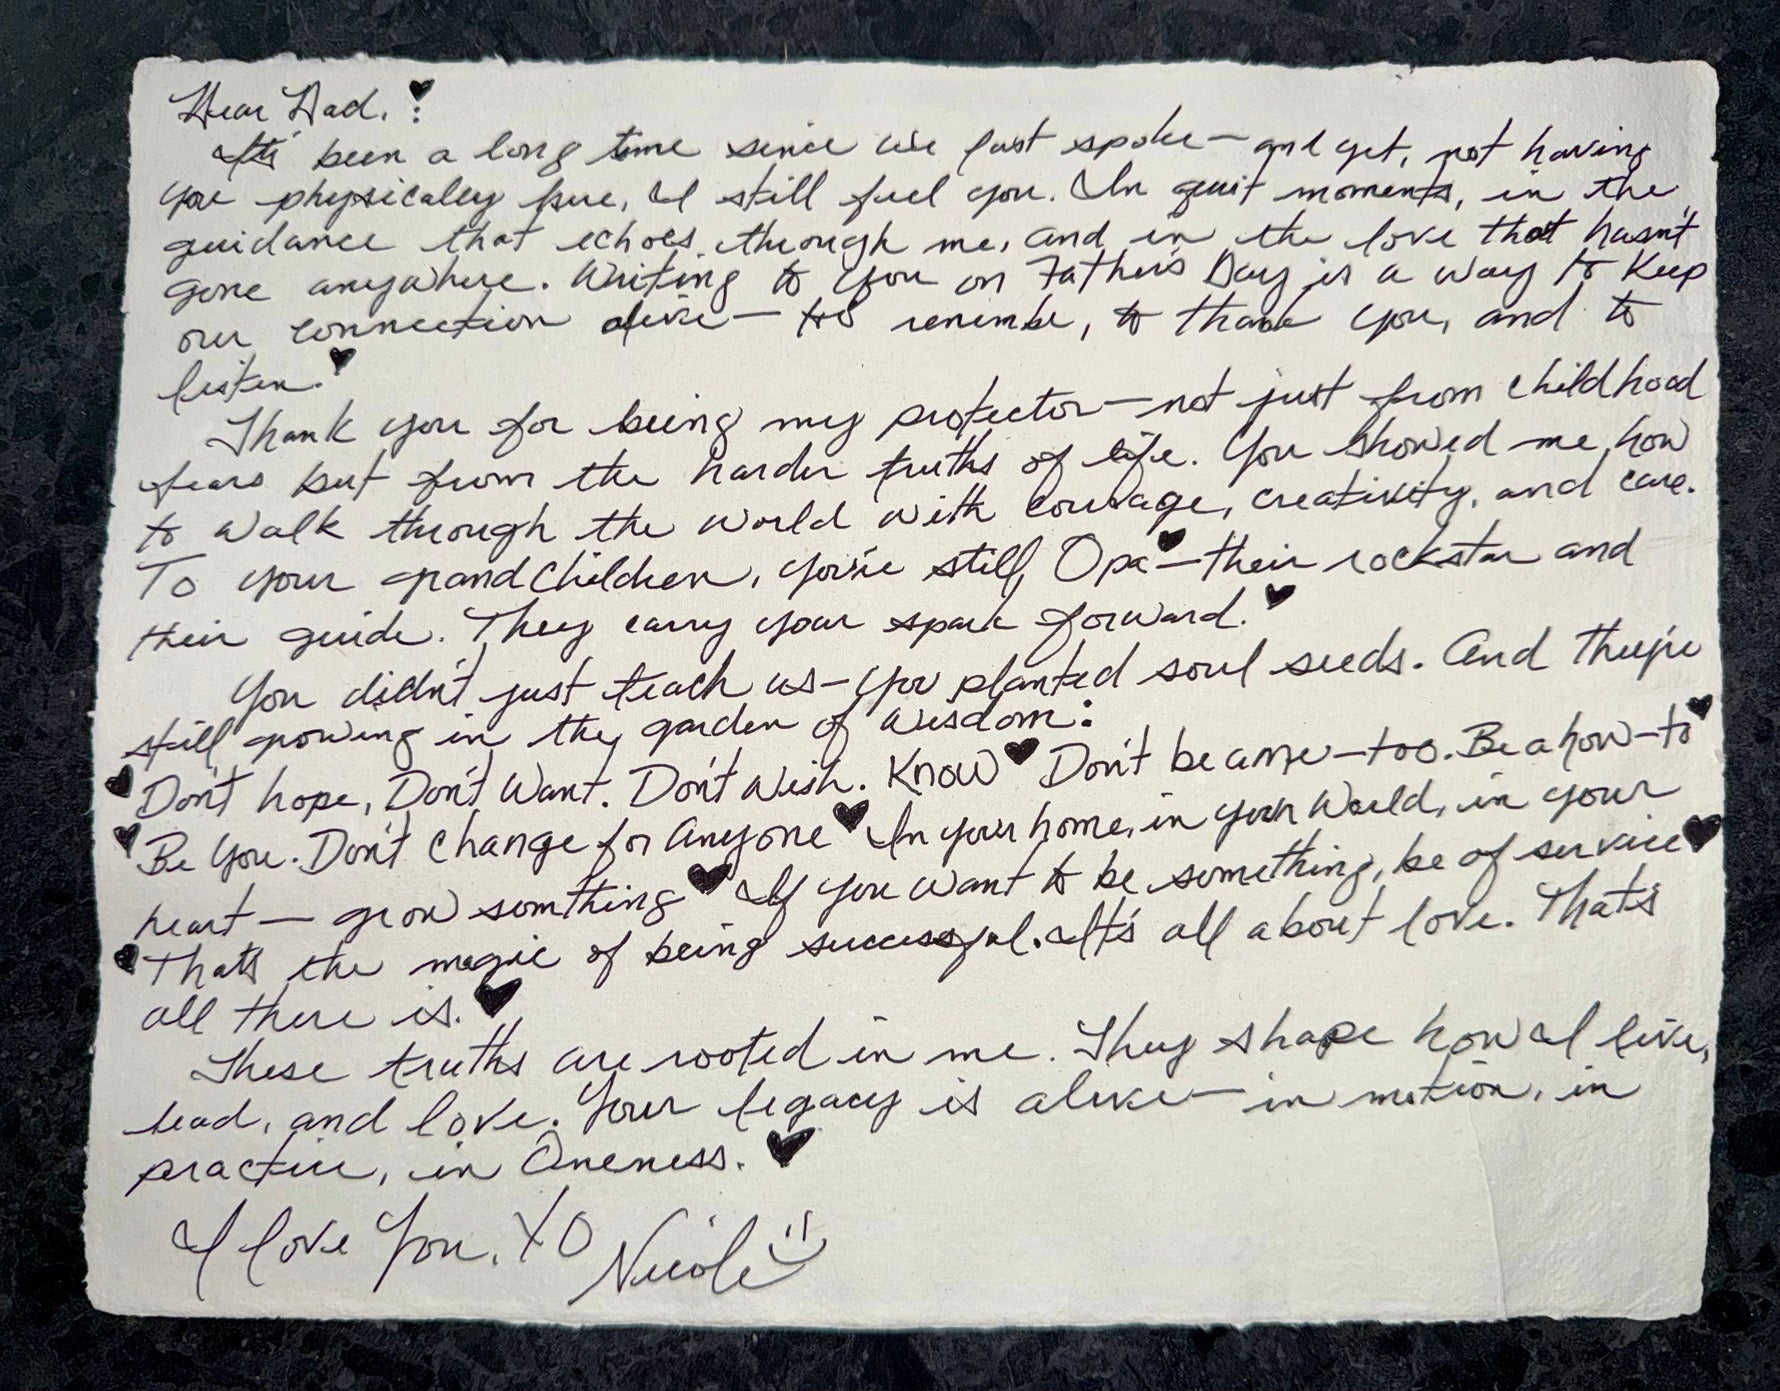 Dear Dad, :♥
It's been a long time since we last spoke — and yet, not having
you physically here, I still feel you. In quiet moments, in the
guidance that echoes through me, and in the love that hasn't
gone anywhere. Writing to you on Father's Day is a way to keep
our connection alive — to remember, to thank you, and to
listen.♥
Thank you for being my protector — not just from childhood
fears but from the harder truths of life. You showed me how
to walk through the world with courage, creativity, and care.
To your grandchildren, you're still Opa♥ — their rockstar and
their guide. They carry your spark forward.♥
You didn't just teach us — you planted soul seeds. And they're
still growing in the garden of wisdom:
♥ Don't hope, Don't Want. Don't Wish. Know♥ Don't be a me-too. Be a how-to♥
♥ Be You. Don't Change for Anyone♥ In your home, in your World, in your
heart — grow something♥ If you want to be something, be of service♥
♥ That's the magic of being successful. It's all about love. That's
all there is.♥
These truths are rooted in me. They shape how I live,
lead, and love. Your legacy is alive — in motion, in
practice, in Oneness.♥
I love You, XO Nicole